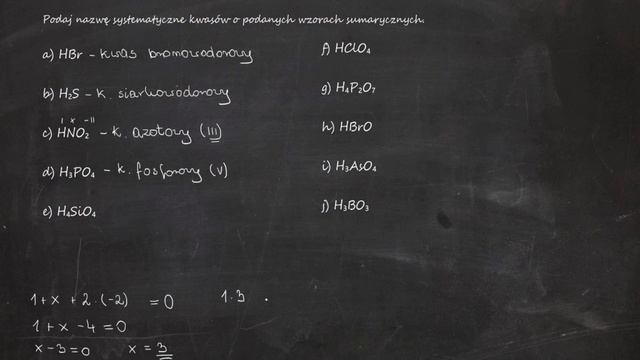 Podaj nazwę systematyczne kwasów o podanych wzorach sumarycznych.
a) HBr – kwas bromowodorowy
b) H₂S – k. siarkowodorowy
I x -II
c) HNO₂ – k. azotowy (III)
d) H₃PO₄ – k. fosforowy (V)
e) H₄SiO₄
f) HClO₄
g) H₄P₂O₇
h) HBrO
i) H₃AsO₄
j) H₃BO₃
1 + x + 2 · (-2) = 0
1 + x - 4 = 0
x - 3 = 0 x = 3
1 · 3 ·